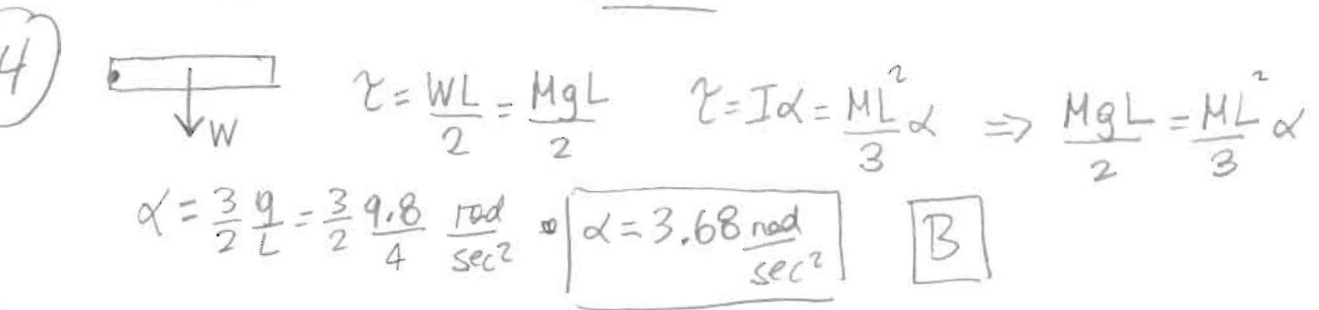 4
W
τ = WL/2 = MgL/2 τ = Iα = ML²/3 α ⇒ MgL/2 = ML²/3 α
α = 3/2 g/L = 3/2 9.8/4 rad/sec² = α = 3.68 rad/sec² B